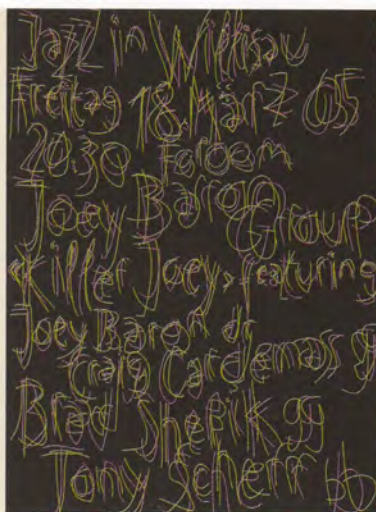 Jazz in Willisau
Freitag 18. März 05
20.30 Foroom
Joey Baron
Group
«Killer Joey» featuring
Joey Baron dr
Craig Cardemas g
Brad Shepik g
Tony Scherr b